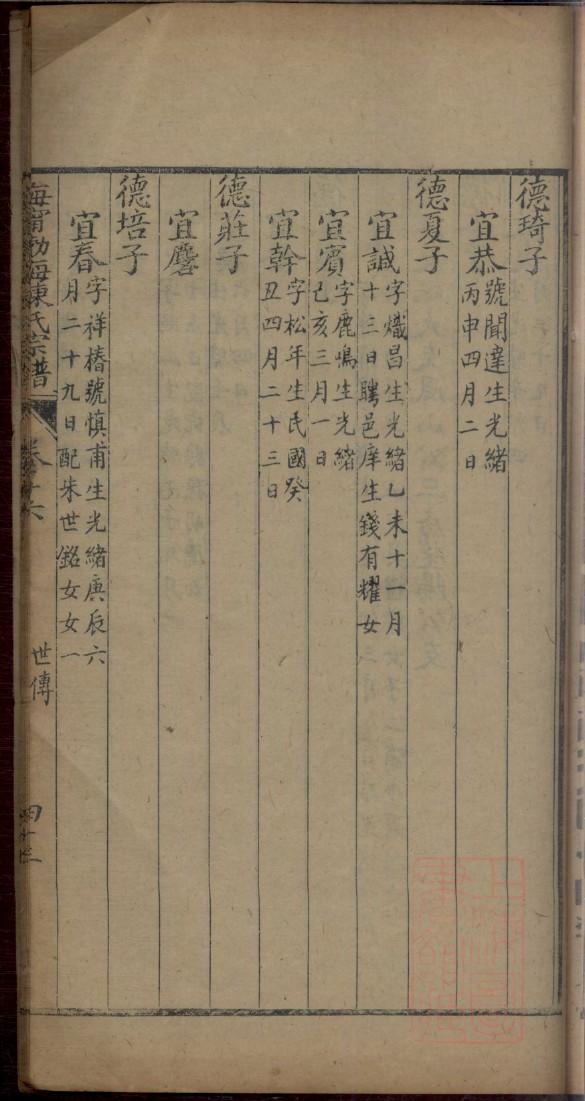 德琦子
宜恭
號聞達生光緒
丙申四月二日
德夏子
宜誠
字熾昌生光緒乙未十一月
十三日聘邑庠生錢有耀女
宜賓
字鹿鳴生光緒
己亥三月一日
宜幹
字松年生民國癸
丑四月二十三日
德莊子
宜麐
德培子
宜春
字祥椿號慎甫生光緒庚辰六
月二十九日配朱世銘女女一
海甯渤海陳氏宗譜
卷十六
世傳
四十三